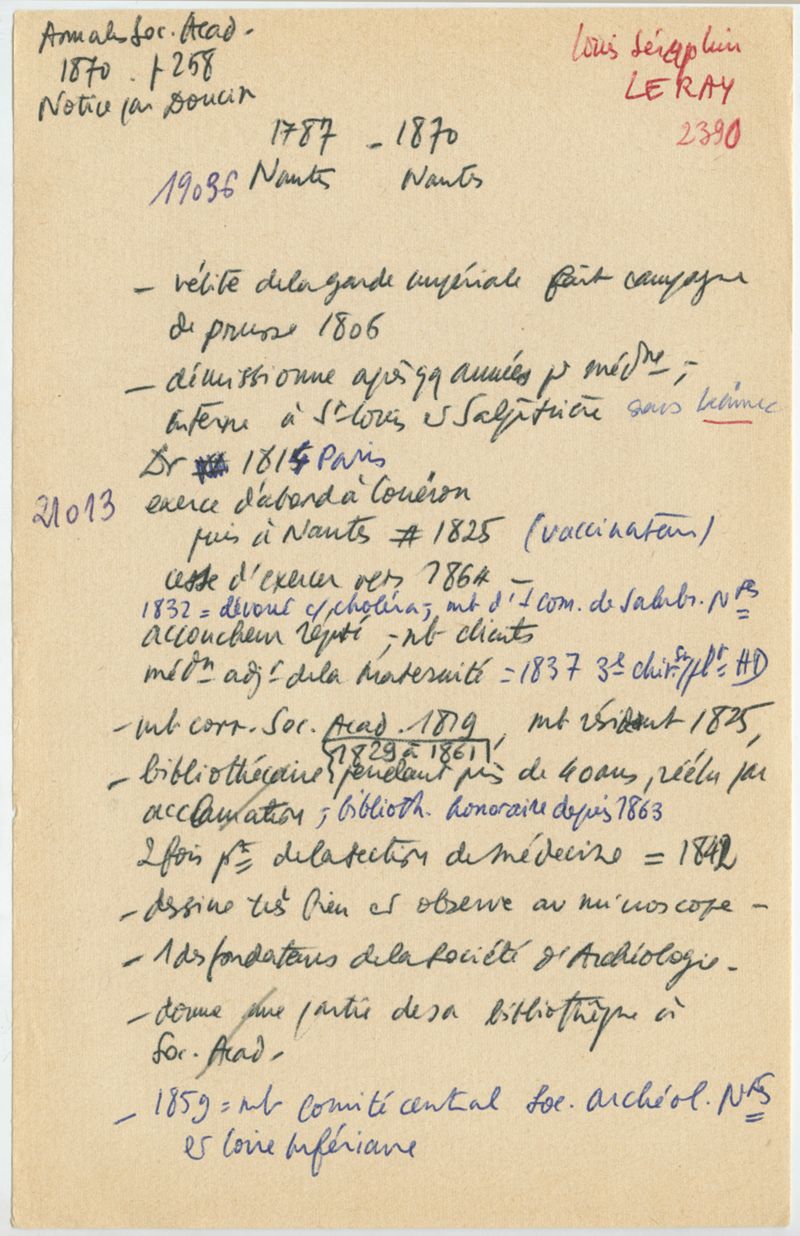 Annales Soc. Acad.
1870. p 258
Notice par Doucin
Louis Séraphin
LERAY
2390
1787 - 1870
19036 Nantes Nantes
- vélite de la garde impériale fait campagne
de prusse 1806
- démissionne après qq années pr médne ;
interne à St Louis et Salpêtrière sous Laënnec
Dr 1815 Paris
21013 exerce d'abord à Couëron
puis à Nantes # 1825 (vaccinateur)
cesse d'exercer vers 1864 -
1832 = dévoué c/choléra ; mb d'1 com. de Salubr. Ntes
accoucheur réputé ; nb clients
médn adjt de la Maternité = 1837 3e chir. HD
- mb corr. Soc. Acad. 1819, mb résident 1825,
1829 à 1861
- bibliothécaire pendant près de 40 ans, réélu par
acclamation ; biblioth. honoraire depuis 1863
2 fois pt de la section de médecine = 1842
- dessine très bien et observe au microscope -
- 1 des fondateurs de la Société d'Archéologie -
- donne une partie de sa bibliothèque à
Soc. Acad.
- 1859 = mb comité central Soc. archéol. Ntes
et Loire Inférieure